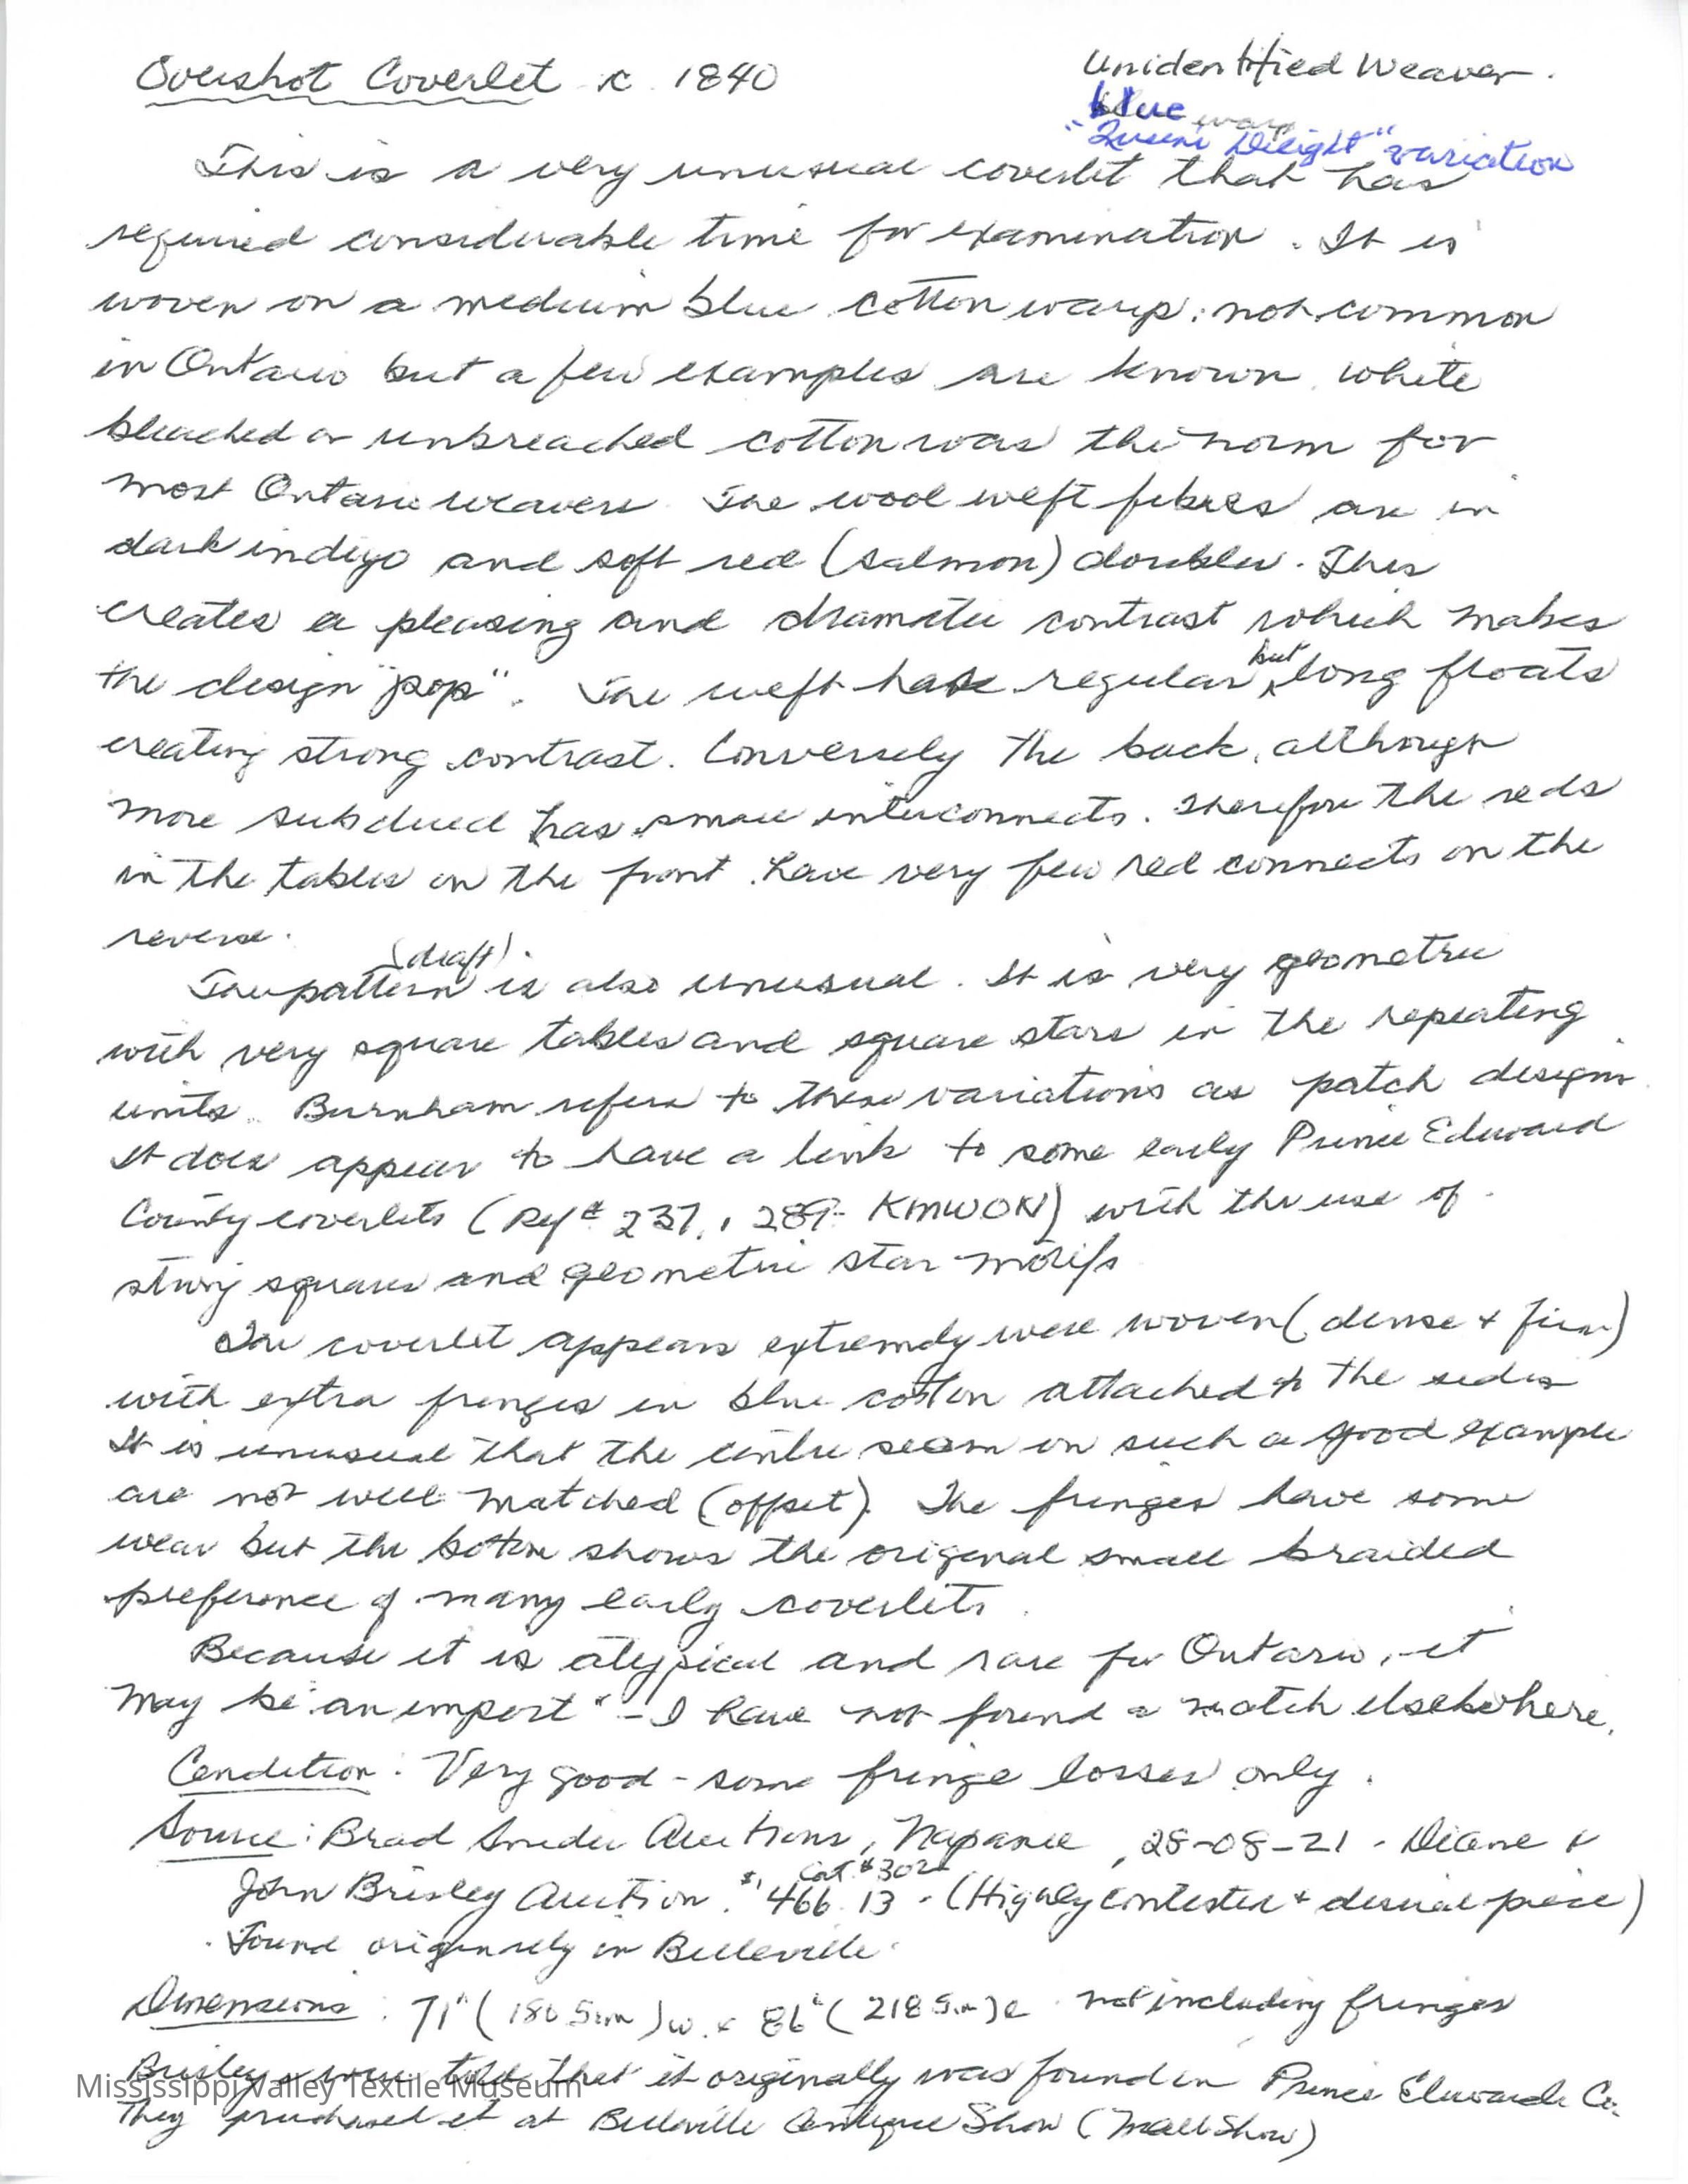 Overshot Coverlet c. 1840
Unidentified Weaver.
blue warp
"Queens Delight" variation
This is a very unusual coverlet that has
required considerable time for examination. It is
woven on a medium blue cotton warp: not common
in Ontario but a few examples are known. White
bleached or unbreached cotton was the norm for
most Ontario weavers. The wool weft fibres are in
dark indigo and soft red (salmon) doubles. This
creates a pleasing and dramatic contrast which makes
the design "pop". The weft has regular but long floats
creating strong contrast. Conversely the back, although
more subdued has small interconnects. Therefore the reds
in the tables on the front have very few red connects on the
reverse.
The pattern (draft) is also unusual. It is very geometric
with very square tables and square stars in the repeating
units. Burnham refers to these variations as patch designs.
It does appear to have a link to some early Prince Edward
County coverlets (Ref # 237, 289 - KMWON) with the use of
strong squares and geometric star motifs
The coverlet appears extremely well woven (dense & firm)
with extra fringes in blue cotton attached to the sides
It is unusual that the centre seam on such a good example
are not well matched (offset). The fringes have some
wear but the bottom shows the original small braided
preference of many early coverlets.
Because it is atypical and rare for Ontario, it
may be "an import" - I have not found a match elsewhere.
Condition: Very good - some fringe losses only.
Source: Brad Snider Auctions, Napanee, 28-08-21 - Diane &
John Brisley Auction. Cat. #302 $1,466.13 - (Highly contested & desired piece)
. Found originally in Belleville.
Dimensions: 71" (180.5cm) w. x 86" (218.5cm) l not including fringes
Brisleys were told that it originally was found in Prince Edward Co.
They purchased it at Belleville Antique Show (Mall Show)
Mississippi Valley Textile Museum